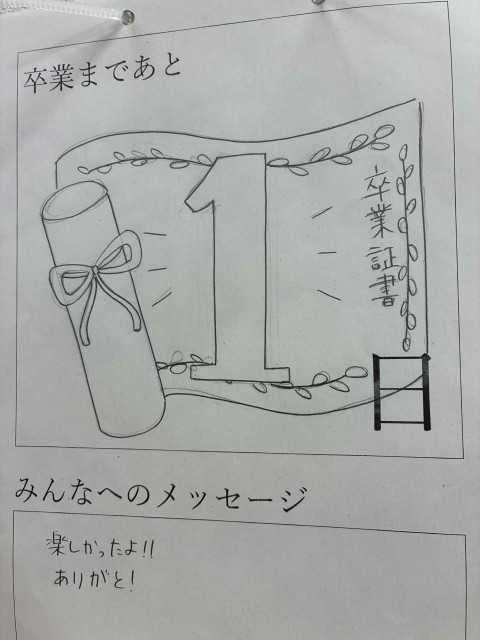 卒業まであと
1
日
卒業証書
みんなへのメッセージ
楽しかったよ!!
ありがと!